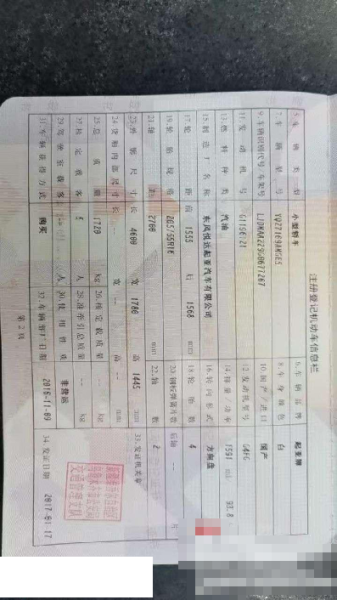 注册登记机动车信息栏
5.车辆类型 小型轿车 6.车辆品牌 起亚牌
7.车辆型号 8.车身颜色 白
9.车辆识别代号/车架号 10.国产/进口 国产
11.发动机号 12.发动机型号 G4FG
13.燃料种类 汽油 14.排量/功率 1591 ml/ 93.8
15.制造厂名称 东风悦达起亚汽车有限公司 16.转向形式 方向盘
17.轮距 前 1555 后 1568 18.轮胎数 4
19.轮胎规格 205/55R16 20.钢板弹簧片数 后轴 --
21.轴距 2700 mm 22.轴数 2
23.外廓尺寸 长 4600 宽 1780 高 1445 mm 33.发证机关章
24.货箱内部尺寸 长 -- 宽 -- 高 -- mm
25.总质量 1720 kg 26.核定载质量 -- kg
27.核定载客 5 人 28.准牵引总质量 -- kg
29.驾驶室载客 -- 人 30.使用性质 非营运
31.车辆获得方式 购买 32.车辆出厂日期 2016-11-09 34.发证日期 2017-01-17
交通管理支队
第2页